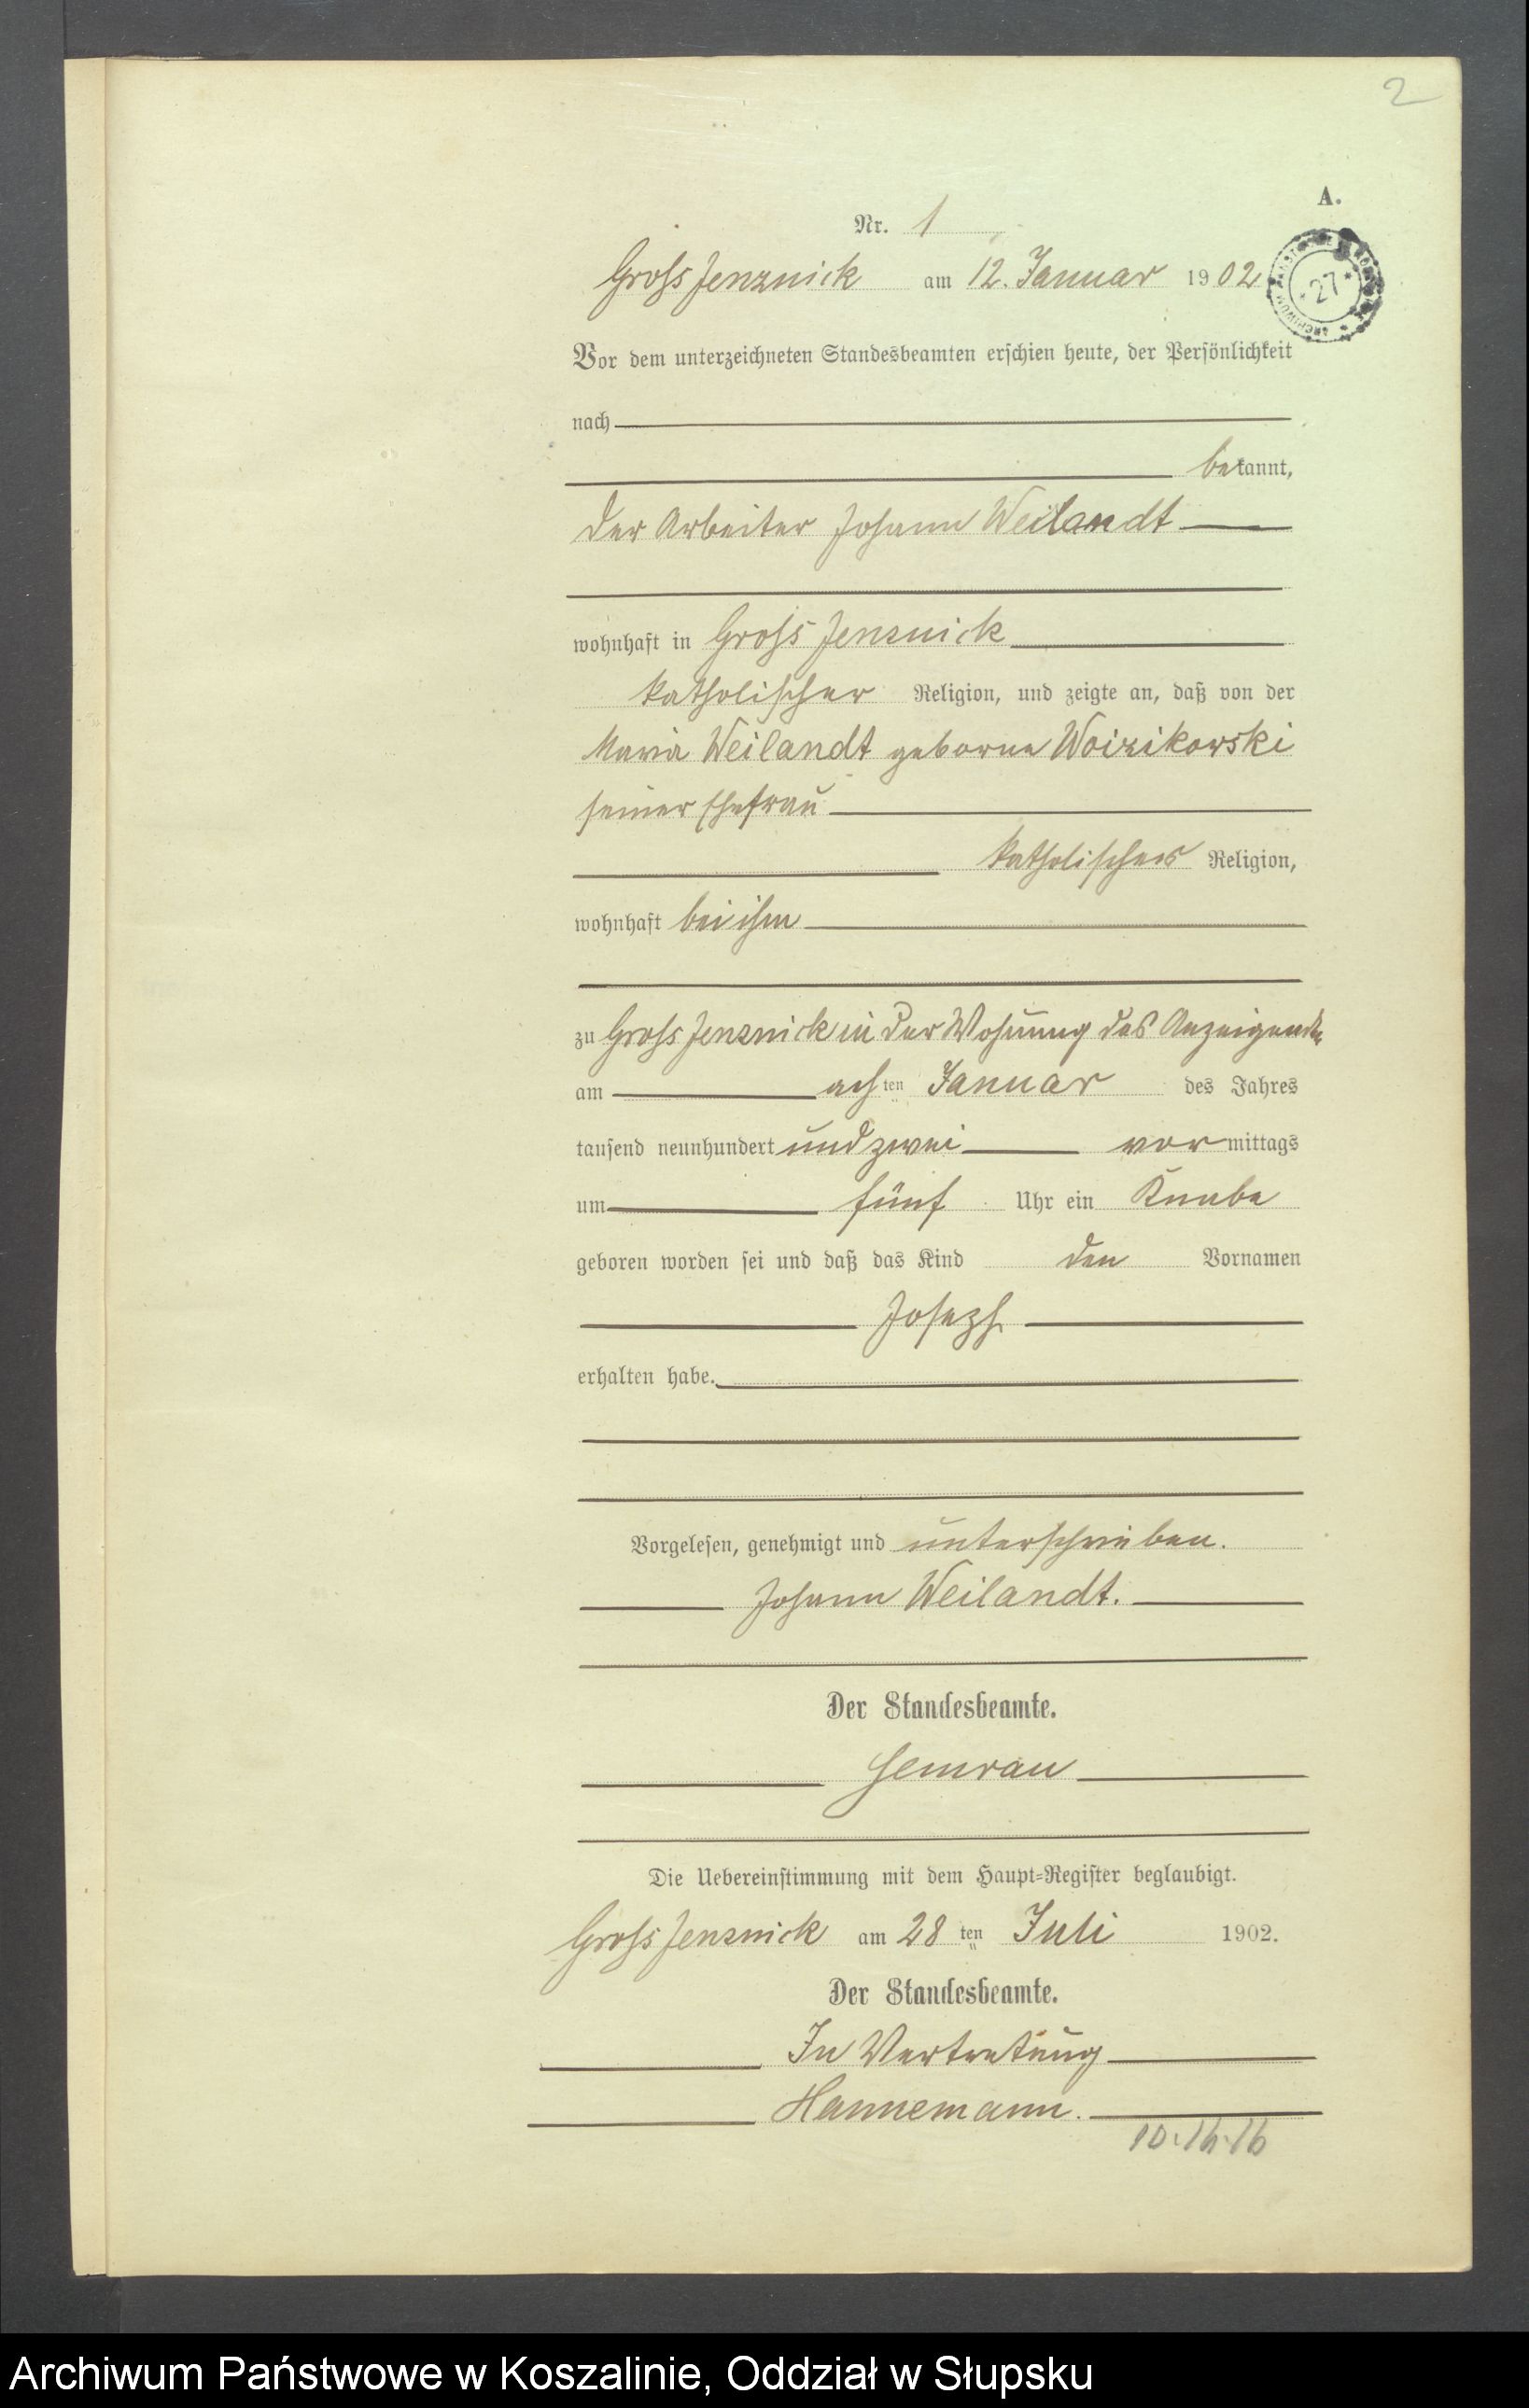 2
A.
Nr. 1
Gross Jenznick am 12. Januar 1902
27
Vor dem unterzeichneten Standesbeamten erschien heute, der Persönlichkeit
nach
bekannt,
der Arbeiter Johann Weilandt
wohnhaft in Gross Jenznick
katholischer Religion, und zeigte an, daß von der
Maria Weilandt geborne Woizikowski
seiner Ehefrau
katholischer Religion,
wohnhaft bei ihm
zu Gross Jenznick in der Wohnung des Anzeigenden
am achten Januar des Jahres
tausend neunhundert und zwei vormittags
um fünf Uhr ein Knabe
geboren worden sei und daß das Kind den Vornamen
Joseph
erhalten habe.
Vorgelesen, genehmigt und unterschrieben.
Johann Weilandt.
Der Standesbeamte.
Semrau
Die Uebereinstimmung mit dem Haupt=Register beglaubigt.
Gross Jenznick am 28 ten Juli 1902.
Der Standesbeamte.
In Vertretung
Hannemann.
Archiwum Państwowe w Koszalinie, Oddział w Słupsku